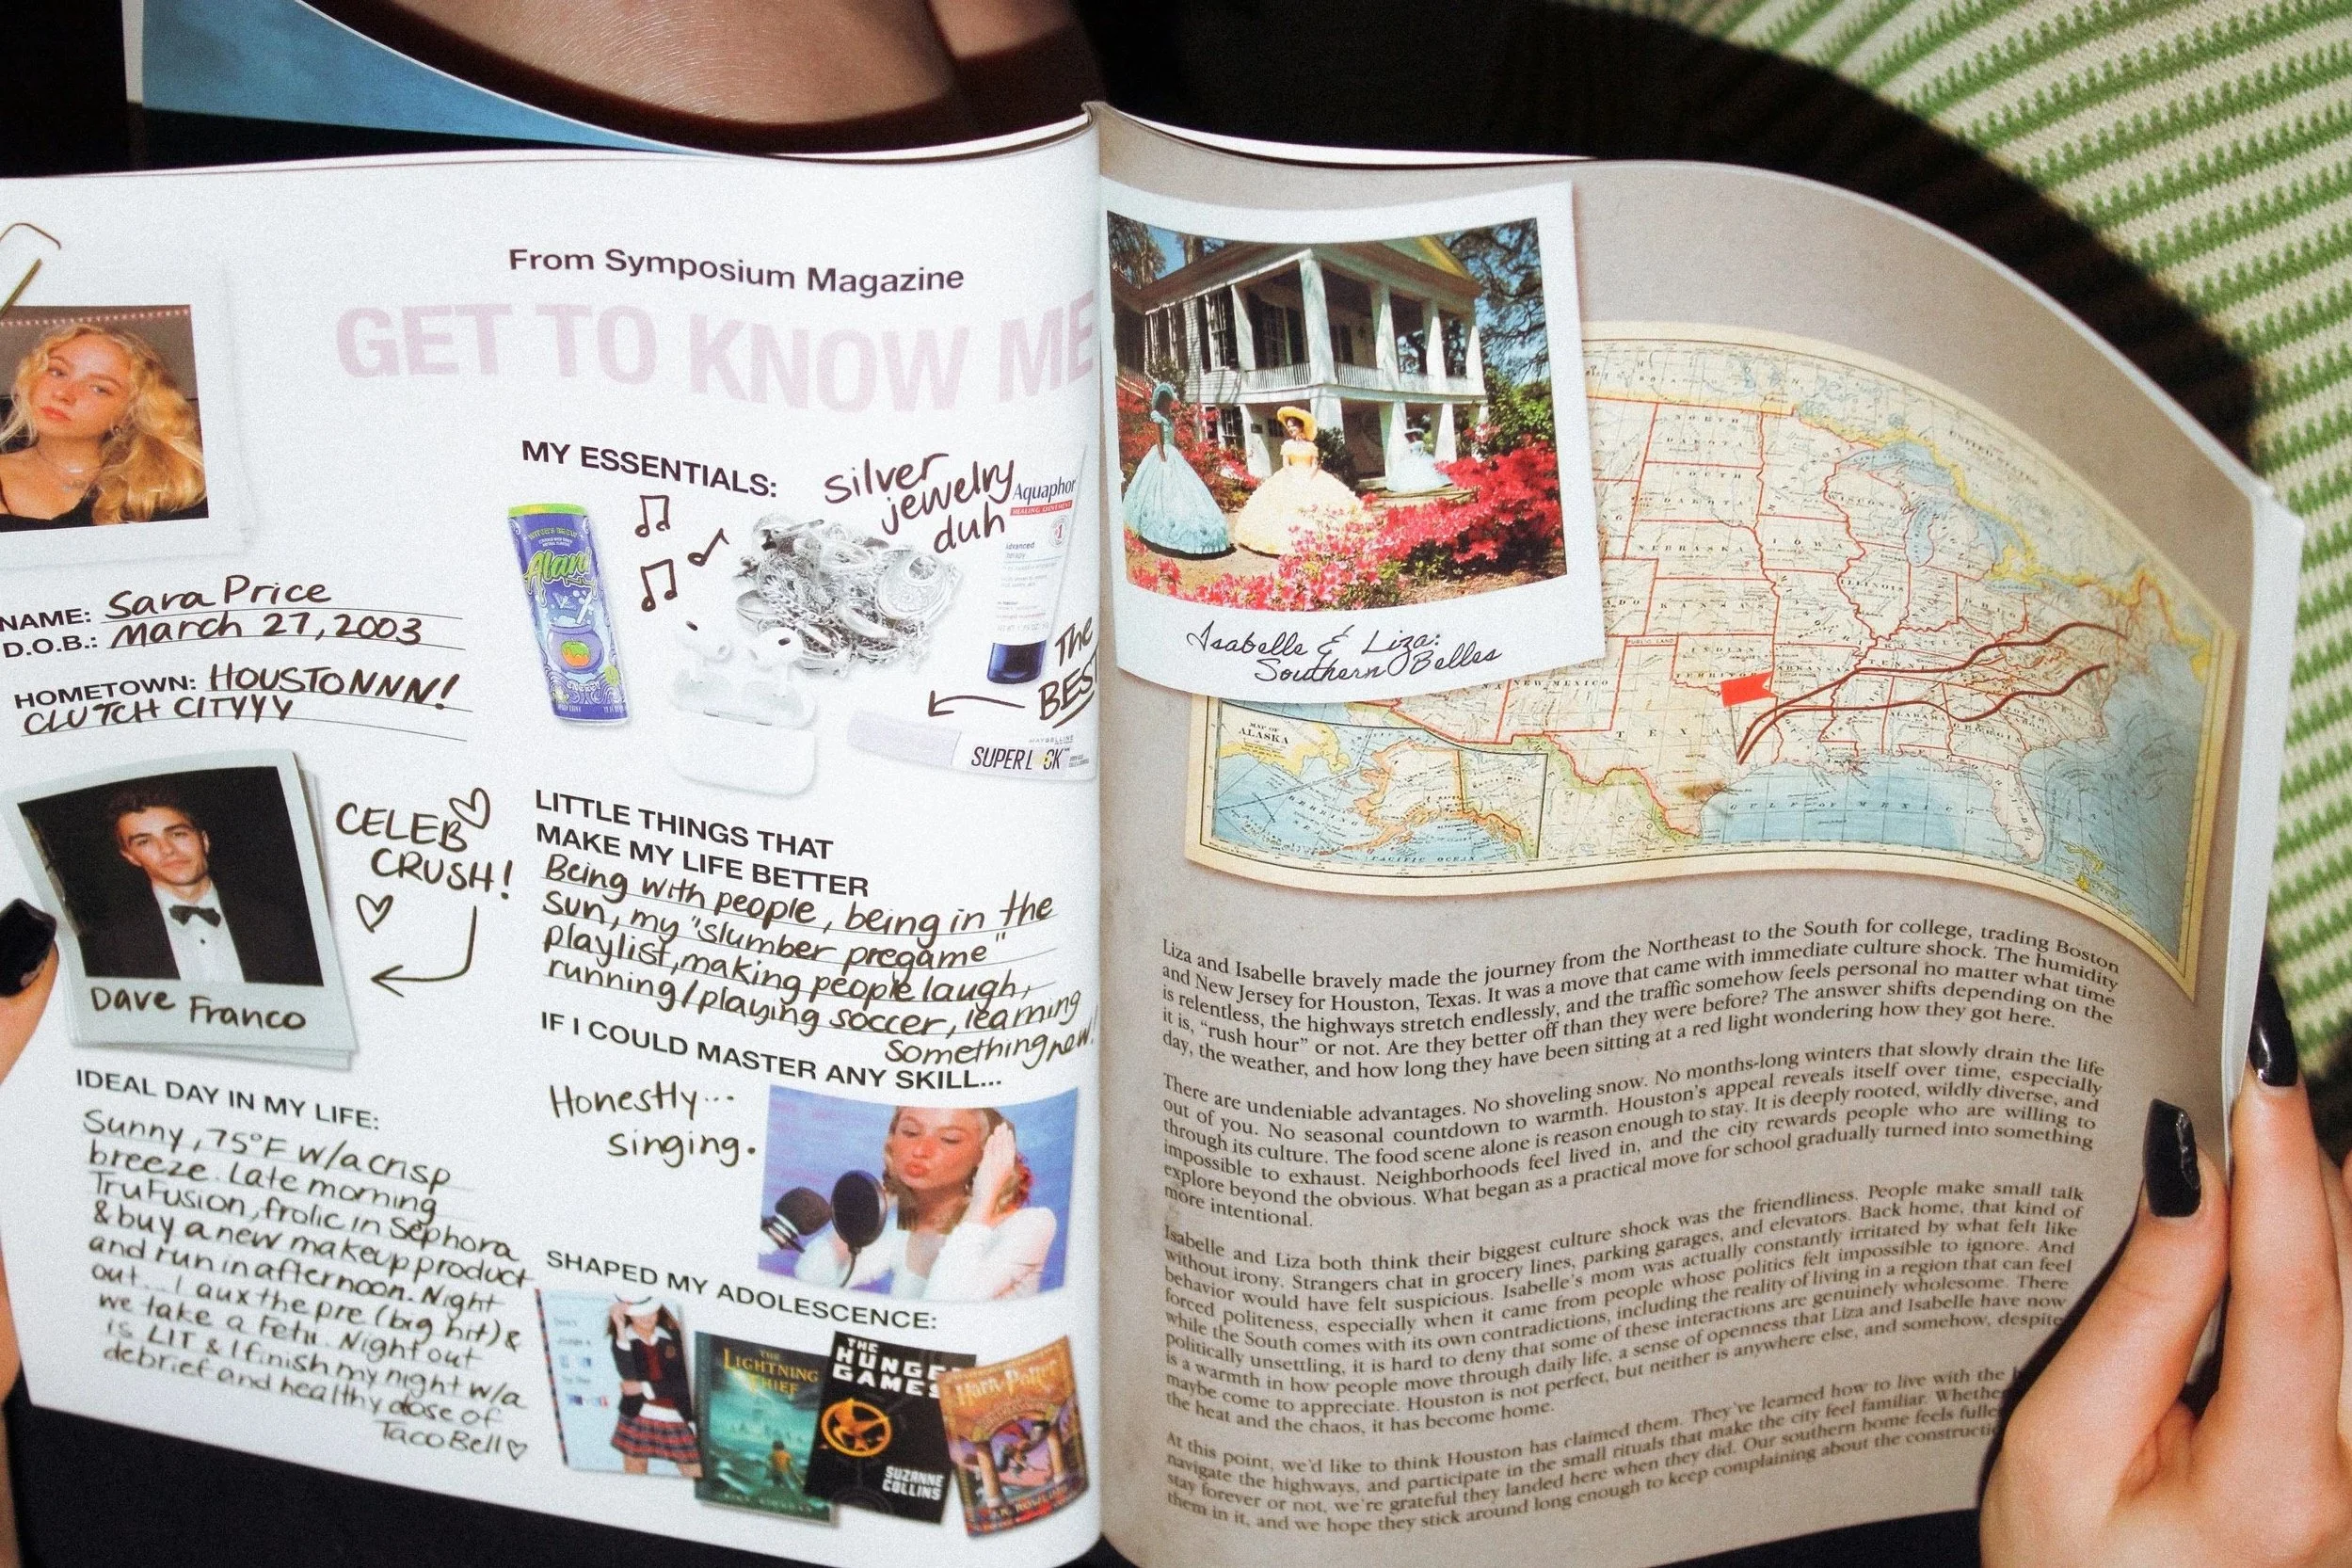 From Symposium Magazine
GET TO KNOW ME
NAME: Sara Price
D.O.B.: March 27, 2003
HOMETOWN: HOUSTONNNN!
CLUTCH CITYYY
CELEB
CRUSH!
Dave Franco
IDEAL DAY IN MY LIFE:
Sunny, 75°F w/a crisp
breeze. Late morning
TruFusion, frolic in Sephora
& buy a new makeup product
and run in afternoon. Night
out... I aux the pre (big hit) &
we take a Fetii. Night out
is LIT & I finish my night w/a
debrief and healthy dose of
Taco Bell
MY ESSENTIALS:
silver
jewelry
duh
Alani
ENERGY
Aquaphor
HEALING OINTMENT
Advanced
The
BEST
MAYBELLINE
SUPERL CK
LITTLE THINGS THAT
MAKE MY LIFE BETTER
Being with people, being in the
sun, my "slumber pregame"
playlist, making people laugh,
running/playing soccer, learning
something new!
IF I COULD MASTER ANY SKILL...
Honestly...
singing.
SHAPED MY ADOLESCENCE:
THE
LIGHTNING
THIEF
RICK RIORDAN
THE
HUNGER
GAMES
SUZANNE
COLLINS
Harry Potter
J.K. ROWLING
Isabelle & Liza:
Southern Belles
NORTH
DAKOTA
SOUTH
DAKOTA
NEBRASKA
IOWA
WISCONSIN
ILLINOIS
KANSAS
INDIAN
TERRITORY
ARKANSAS
NEW MEXICO
TEXAS
ALABAMA
GEORGIA
GULF OF MEXICO
MAP OF
ALASKA
PACIFIC OCEAN
Liza and Isabelle bravely made the journey from the Northeast to the South for college, trading Boston
and New Jersey for Houston, Texas. It was a move that came with immediate culture shock. The humidity
is relentless, the highways stretch endlessly, and the traffic somehow feels personal no matter what time
it is, "rush hour" or not. Are they better off than they were before? The answer shifts depending on the
day, the weather, and how long they have been sitting at a red light wondering how they got here.
There are undeniable advantages. No shoveling snow. No months-long winters that slowly drain the life
out of you. No seasonal countdown to warmth. Houston's appeal reveals itself over time, especially
through its culture. The food scene alone is reason enough to stay. It is deeply rooted, wildly diverse, and
impossible to exhaust. Neighborhoods feel lived in, and the city rewards people who are willing to
explore beyond the obvious. What began as a practical move for school gradually turned into something
more intentional.
Isabelle and Liza both think their biggest culture shock was the friendliness. People make small talk
without irony. Strangers chat in grocery lines, parking garages, and elevators. Back home, that kind of
behavior would have felt suspicious. Isabelle's mom was actually constantly irritated by what felt like
forced politeness, especially when it came from people whose politics felt impossible to ignore. And
while the South comes with its own contradictions, including the reality of living in a region that can feel
politically unsettling, it is hard to deny that some of these interactions are genuinely wholesome. There
is a warmth in how people move through daily life, a sense of openness that Liza and Isabelle have now
maybe come to appreciate. Houston is not perfect, but neither is anywhere else, and somehow, despite
the heat and the chaos, it has become home.
At this point, we'd like to think Houston has claimed them. They've learned how to live with the
navigate the highways, and participate in the small rituals that make the city feel familiar. Whether
stay forever or not, we're grateful they landed here when they did. Our southern home feels fuller
them in it, and we hope they stick around long enough to keep complaining about the constructi